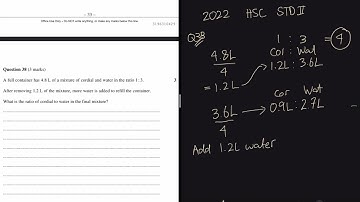 - 39 -
Office Use Only - Do NOT write anything, or make any marks below this line.
Question 38 (3 marks)
A full container has 4.8 L of a mixture of cordial and water in the ratio 1 : 3.
3
After removing 1.2 L of the mixture, more water is added to refill the container.
What is the ratio of cordial to water in the final mixture?
2022 HSC STD II
Q38
1 : 3 = 4
4.8L
4
= 1.2L
Col : Wat
1.2L : 3.6L
3.6L
4
Cor Wat
0.9L : 2.7L
Add 1.2L water